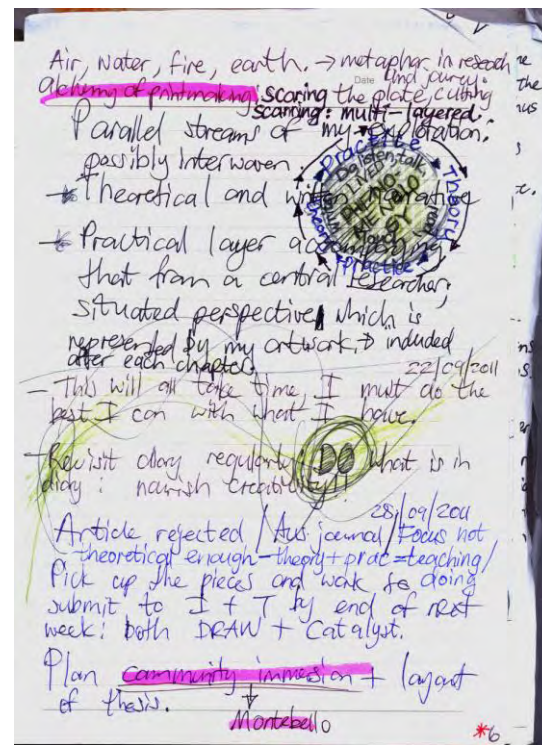 Air, Water, fire, earth. → metaphor in reseach
Date and
Alchemy of printmaking, scoring the plate, cutting
scarring: multi-layered.
Parallel streams of my exploration:
possibly interwoven.
Practice
Theory
practice
theory
Do, listen, talk
LIVED
PHENO-
MENOLO
GY
* Theoretical and written narrative
* Practical layer accompanying
that from a central researcher,
situated perspective, which is
represented by my artwork → included
after each chapter.
22/09/2011
- This will all take time, I must do the
best I can with what I have.
- Revisit diary regularly: DO what is in
diary: nourish creativity!
28/09/2011
Article rejected / Aus journal / Focus not
theoretical enough - theory + prac = teaching /
Pick up the pieces and work doing
submit to I + T by end of next
week: both DRAW + Catalyst.
Plan community immersion + layout
of thesis.
Montebello
*6